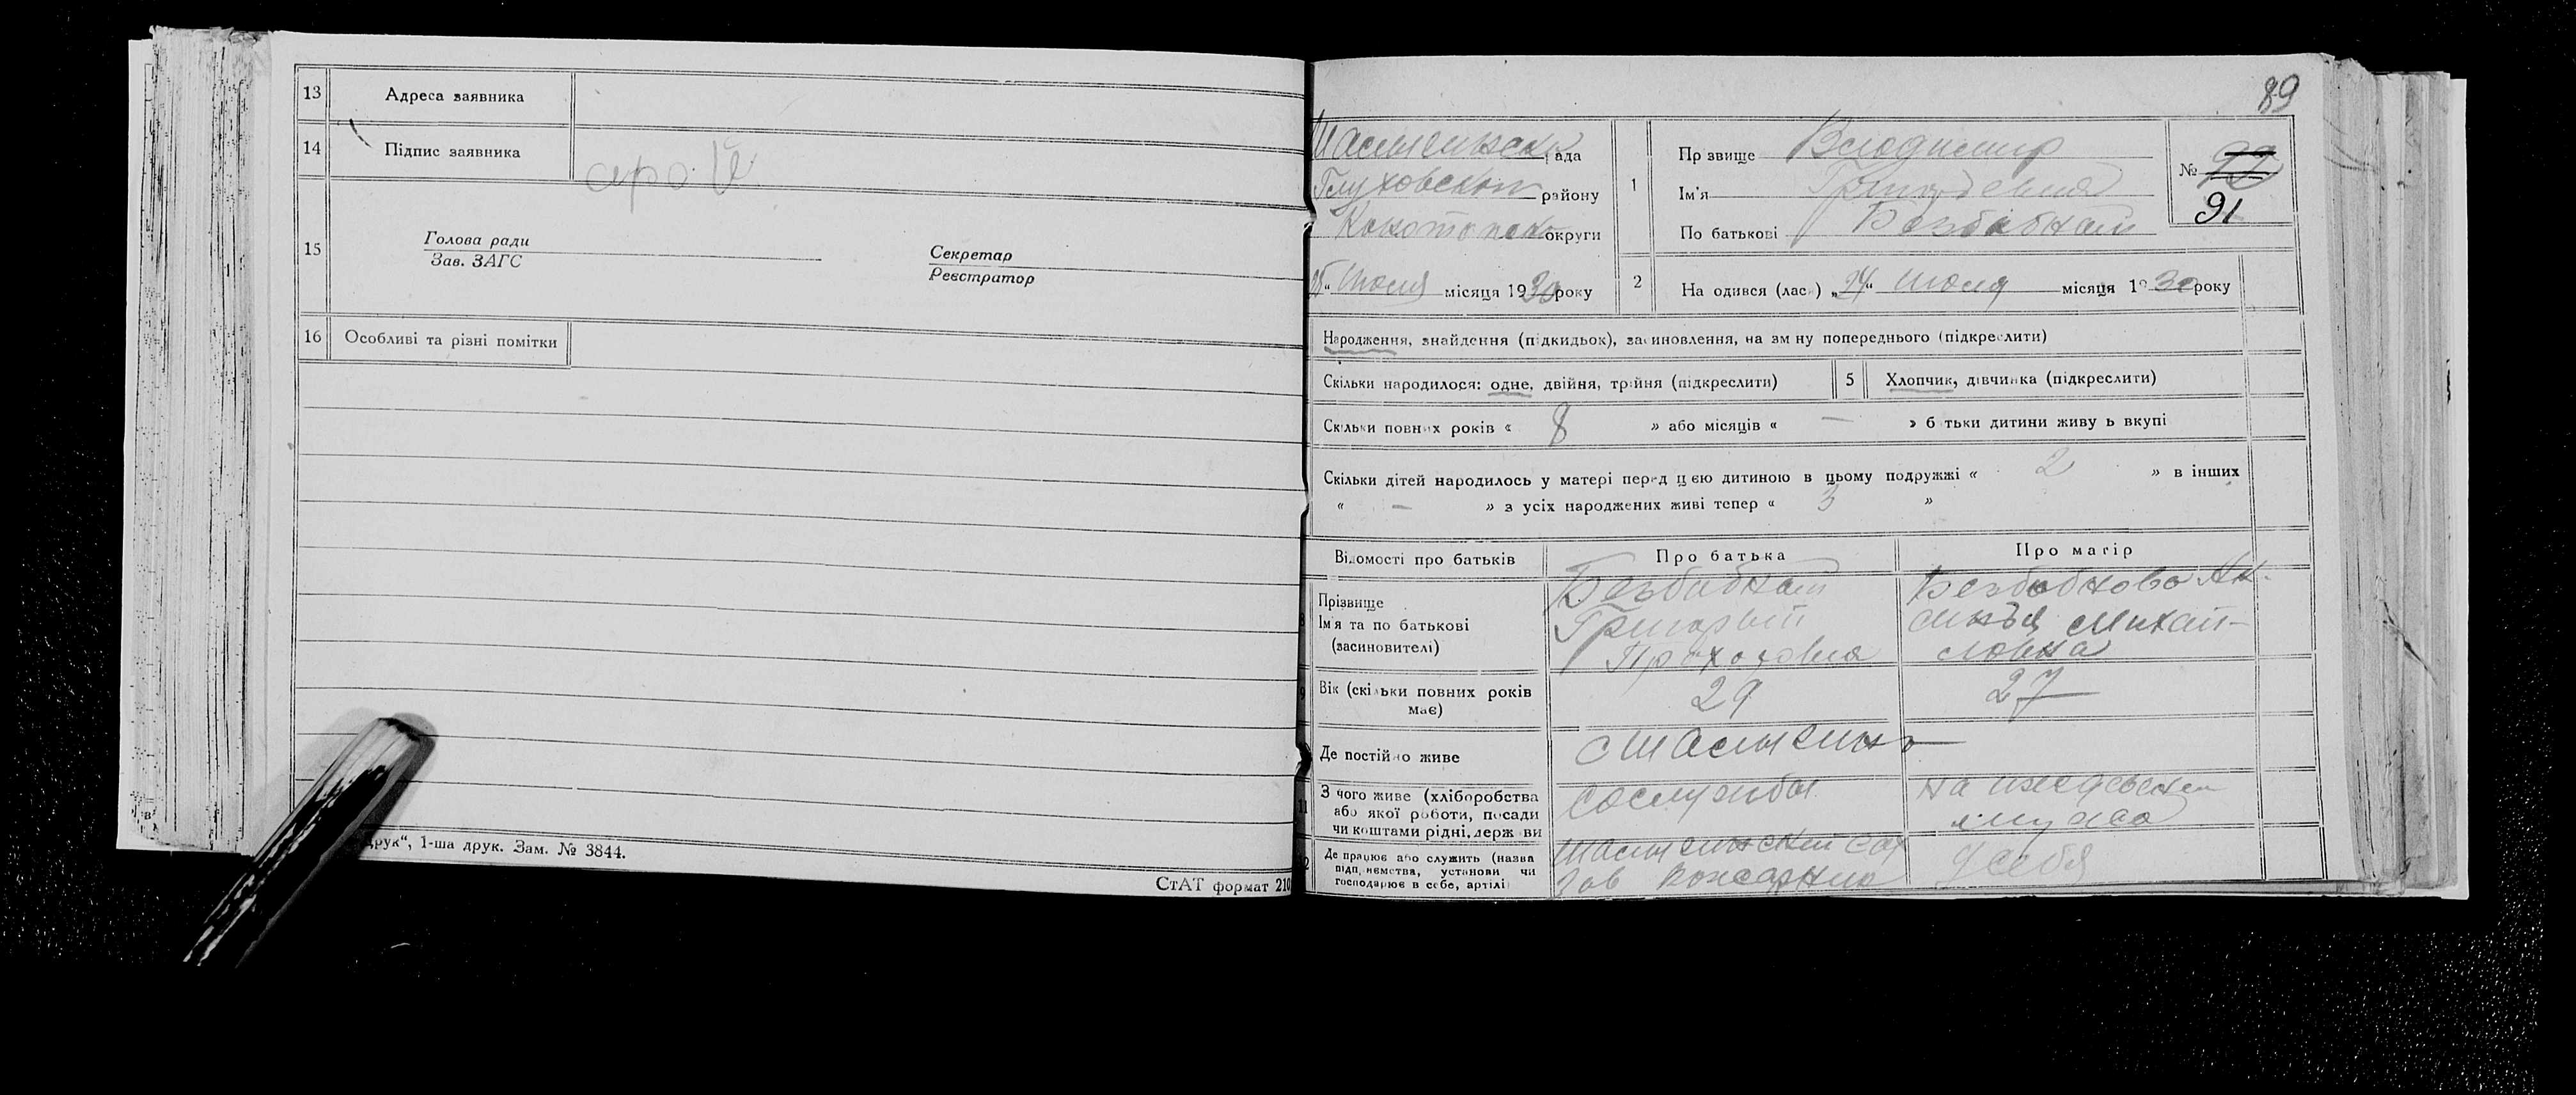 13 Адреса заявника
14 Підпис заявника
15 Голова ради
Зав. ЗАГС
Секретар
Реєстратор
16 Особливі та різні помітки
друк“, 1-ша друк. Зам. № 3844.
СтАТ формат 210
89
рада
Глуховского району
Конотопск округи
Июля місяця 1930 року
1
Пр звище Владимир
Ім'я Григорьевич
По батькові Безбабный
№ 92
91
2 На одився (лась) „24“ Июля місяця 1930 року
Народження, знайдення (підкидьок), засиновлення, на зм ну попереднього (підкреслити)
Скільки народилося: одне, двійня, трійня (підкреслити)
5 Хлопчик, дівчинка (підкреслити)
Скільки повних років « 8 » або місяців « — » б тьки дитини живу ь вкупі
Скільки дітей народилось у матері перед цією дитиною в цьому подружжі « 2 » в інших
« — » з усіх народжених живі тепер « 3 »
Відомості про батьків Про батька Про матір
Прізвище
Ім'я та по батькові
(засиновителі)
Григорий
Михай-
ловна
Вік (скільки повних років
має) 29 27
Де постійно живе
З чого живе (хліборобства
або якої роботи, посади
чи коштами рідні, держ ви
Со службы
На иждевении
мужа
Де працює або служить (назва
підп, иємства, установи чи
господарює в себе, артілі
У себя